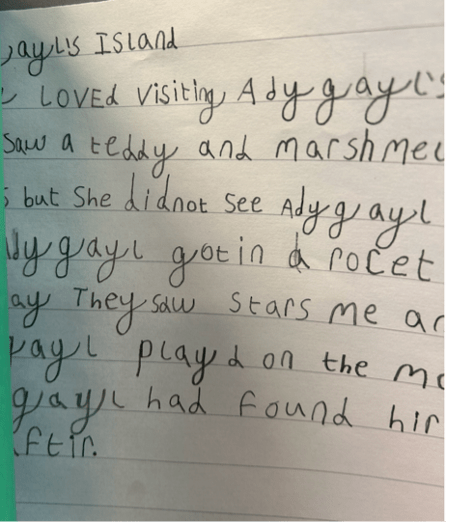 aylis Island
LOVEd visiting Adygayl's
Saw a teddy and marshmel
s but She didnot see Adygayl
dygayl gotin a rocet
ay They saw Stars me an
gayl playd on the mo
gayl had found hir
aftir.